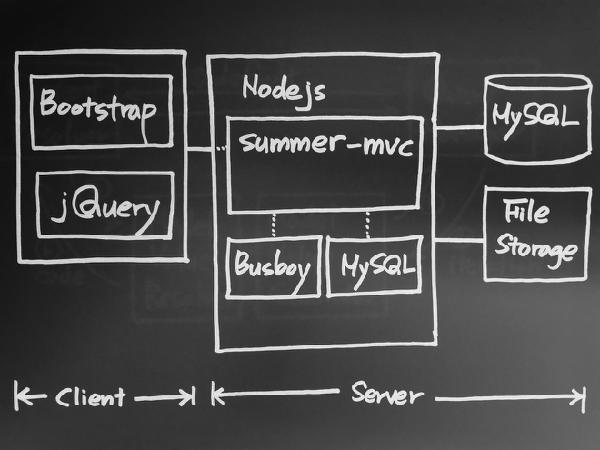 Bootstrap
jQuery
Nodejs
summer-mvc
Busboy
MySQL
MySQL
File
Storage
Client
Server